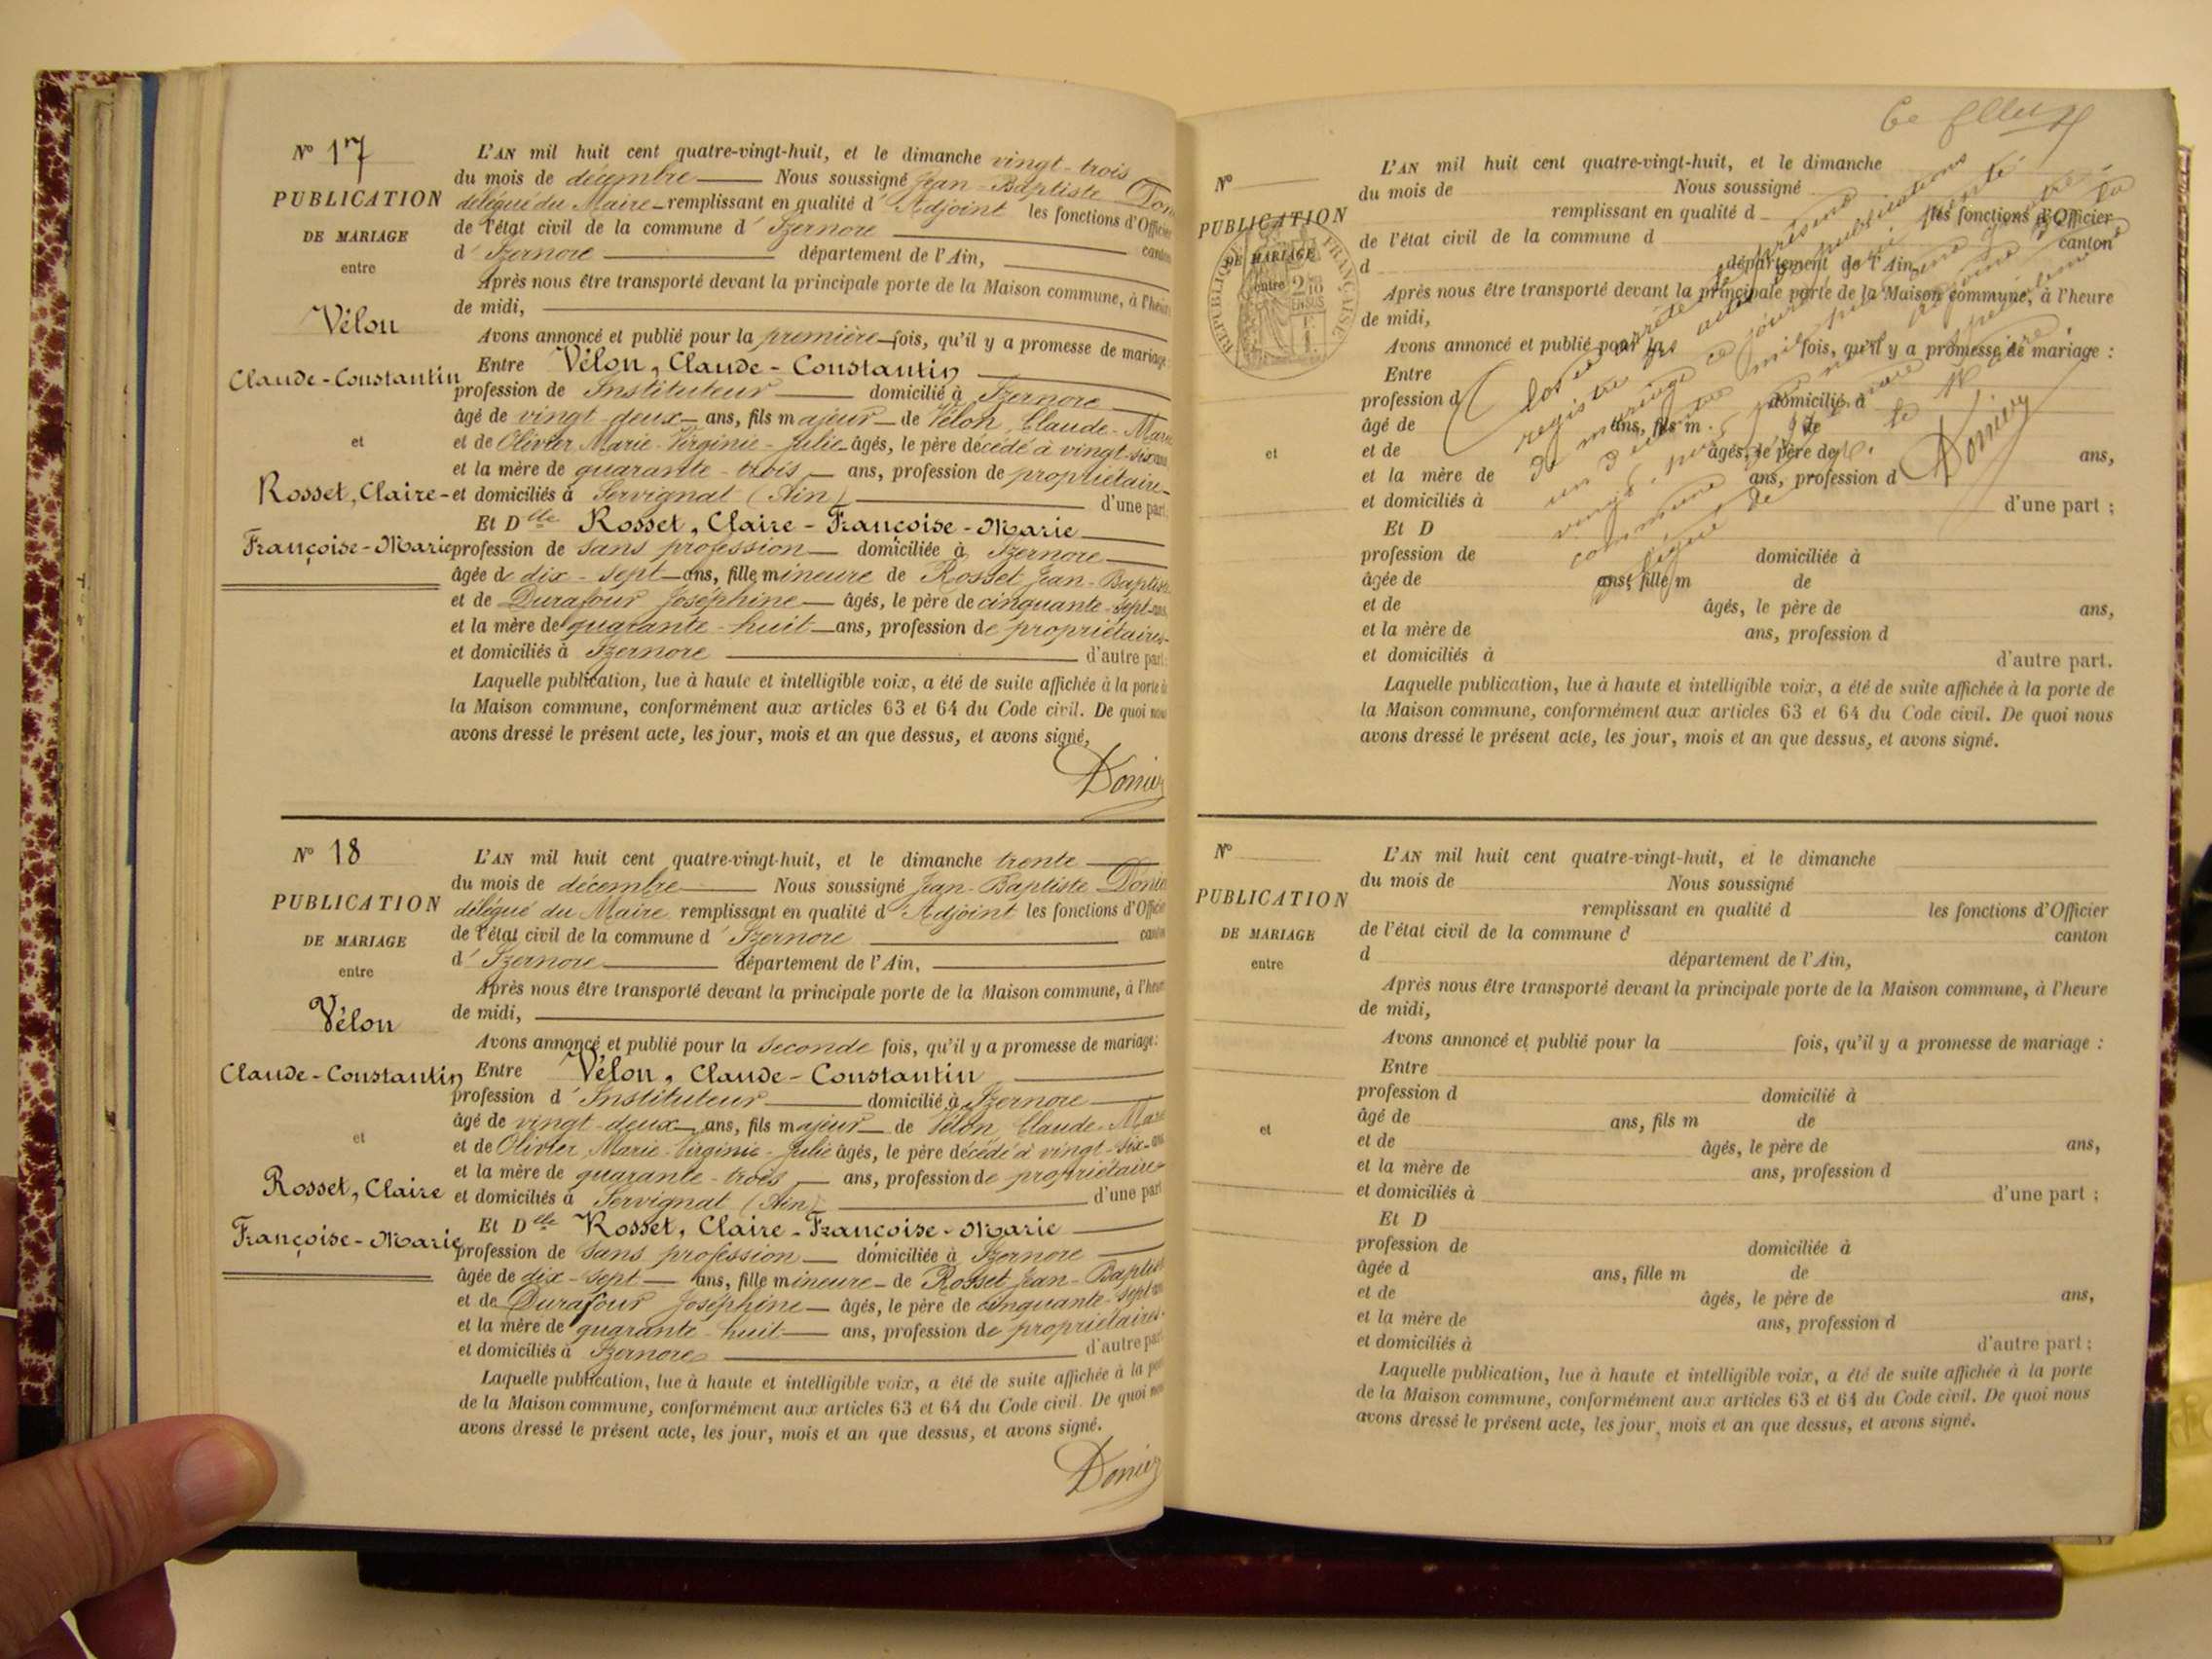 N° 17
PUBLICATION
DE MARIAGE
entre
Vélon
Claude-Constantin
et
Rosset, Claire-
Françoise-Marie
L'AN mil huit cent quatre-vingt-huit, et le dimanche vingt-trois
du mois de décembre Nous soussigné Jean-Baptiste
délégué du Maire remplissant en qualité d'Adjoint les fonctions d'Officier
de l'état civil de la commune d'Izernore canton
d'Izernore département de l'Ain,
Après nous être transporté devant la principale porte de la Maison commune, à l'heure
de midi,
Avons annoncé et publié pour la première fois, qu'il y a promesse de mariage
Entre Vélon, Claude-Constantin
profession de Instituteur domicilié à Izernore
âgé de vingt-deux ans, fils majeur de Vélon, Claude-Marie
et de Olivier Marie-Virginie-Julie âgés, le père décédé à vingt-six ans
et la mère de quarante-trois ans, profession de propriétaire
et domiciliés à Servignat (Ain) d'une part
Et Dlle Rosset, Claire-Françoise-Marie
profession de sans profession domiciliée à Izernore
âgée de dix-sept ans, fille mineure de Rosset Jean-Baptiste
et de Durafour Joséphine âgés, le père de cinquante-sept ans
et la mère de quarante-huit ans, profession de propriétaires
et domiciliés à Izernore d'autre part
Laquelle publication, lue à haute et intelligible voix, a été de suite affichée à la porte de
la Maison commune, conformément aux articles 63 et 64 du Code civil. De quoi nous
avons dressé le présent acte, les jour, mois et an que dessus, et avons signé,
N° 18
PUBLICATION
DE MARIAGE
entre
Vélon
Claude-Constantin
et
Rosset, Claire
Françoise-Marie
L'AN mil huit cent quatre-vingt-huit, et le dimanche trente
du mois de décembre Nous soussigné Jean-Baptiste
délégué du Maire remplissant en qualité d'Adjoint les fonctions d'Officier
de l'état civil de la commune d'Izernore canton
d'Izernore département de l'Ain,
Après nous être transporté devant la principale porte de la Maison commune, à l'heure
de midi,
Avons annoncé et publié pour la seconde fois, qu'il y a promesse de mariage:
Entre Vélon, Claude-Constantin
profession d'Instituteur domicilié à Izernore
âgé de vingt-deux ans, fils majeur de Vélon, Claude-Marie
et de Olivier, Marie-Virginie-Julie âgés, le père décédé à vingt-six-ans
et la mère de quarante-trois ans, profession de propriétaire
et domiciliés à Servignat (Ain) d'une part
Et Dlle Rosset, Claire-Françoise-Marie
profession de sans profession domiciliée à Izernore
âgée de dix-sept ans, fille mineure de Rosset Jean-Baptiste
et de Durafour Joséphine âgés, le père de cinquante-sept ans
et la mère de quarante-huit ans, profession de propriétaires
et domiciliés à Izernore d'autre part
Laquelle publication, lue à haute et intelligible voix, a été de suite affichée à la porte
de la Maison commune, conformément aux articles 63 et 64 du Code civil. De quoi nous
avons dressé le présent acte, les jour, mois et an que dessus, et avons signé.
N°
PUBLICATION
DE MARIAGE
entre
et
RÉPUBLIQUE FRANÇAISE
L'AN mil huit cent quatre-vingt-huit, et le dimanche
du mois de Nous soussigné
remplissant en qualité d les fonctions d'Officier
de l'état civil de la commune d canton
d département de l'Ain,
Après nous être transporté devant la principale porte de la Maison commune, à l'heure
de midi,
Avons annoncé et publié pour la fois, qu'il y a promesse de mariage :
Entre
profession d domicilié à
âgé de ans, fils m de
et de âgés, le père de ans,
et la mère de ans, profession d
et domiciliés à d'une part ;
Et D
profession de domiciliée à
âgée de ans, fille m de
et de âgés, le père de ans,
et la mère de ans, profession d
et domiciliés à d'autre part.
Laquelle publication, lue à haute et intelligible voix, a été de suite affichée à la porte de
la Maison commune, conformément aux articles 63 et 64 du Code civil. De quoi nous
avons dressé le présent acte, les jour, mois et an que dessus, et avons signé.
Clos et arrêté le présent
registre des actes de publications
de mariage ce jourd'hui trente
un décembre mil huit cent
Le Maire
N°
PUBLICATION
DE MARIAGE
entre
et
L'AN mil huit cent quatre-vingt-huit, et le dimanche
du mois de Nous soussigné
remplissant en qualité d les fonctions d'Officier
de l'état civil de la commune d canton
d département de l'Ain,
Après nous être transporté devant la principale porte de la Maison commune, à l'heure
de midi,
Avons annoncé et publié pour la fois, qu'il y a promesse de mariage :
Entre
profession d domicilié à
âgé de ans, fils m de
et de âgés, le père de ans,
et la mère de ans, profession d
et domiciliés à d'une part ;
Et D
profession de domiciliée à
âgée d ans, fille m de
et de âgés, le père de ans,
et la mère de ans, profession d
et domiciliés à d'autre part ;
Laquelle publication, lue à haute et intelligible voix, a été de suite affichée à la porte
de la Maison commune, conformément aux articles 63 et 64 du Code civil. De quoi nous
avons dressé le présent acte, les jour, mois et an que dessus, et avons signé.